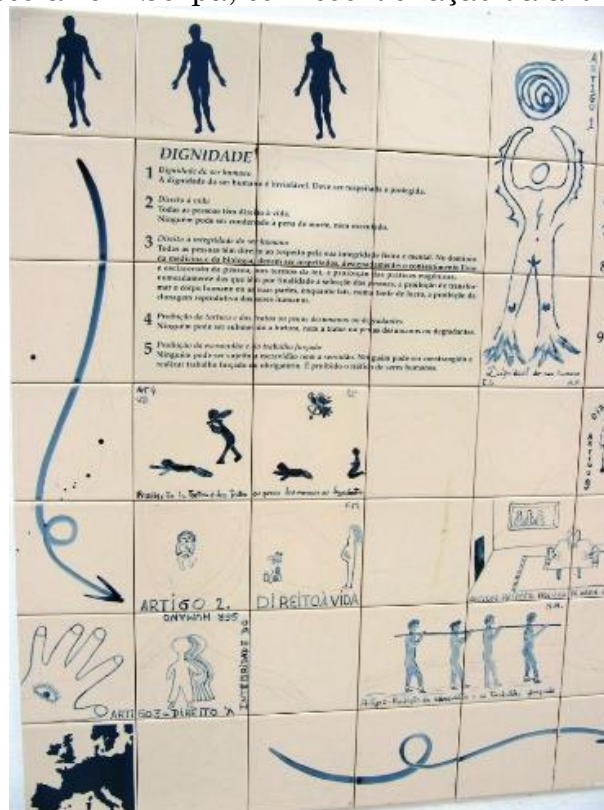 DIGNIDADE
1 Dignidade do ser humano
A dignidade do ser humano é inviolável. Deve ser respeitada e protegida.
2 Direito à vida
Todas as pessoas têm direito à vida.
Ninguém pode ser condenado à pena de morte, nem executado.
3 Direito à integridade do ser humano
Todas as pessoas têm direito ao respeito pela sua integridade física e mental. No domínio
da medicina e da biologia, devem ser respeitados, designadamente: o consentimento livre
e esclarecido da pessoa, nos termos da lei, a proibição das práticas eugénicas,
nomeadamente das que têm por finalidade a selecção das pessoas, a proibição de transfor-
mar o corpo humano ou as suas partes, enquanto tais, numa fonte de lucro, a proibição da
clonagem reprodutiva dos seres humanos.
4 Proibição da tortura e dos tratos ou penas desumanos ou degradantes
Ninguém pode ser submetido a tortura, nem a tratos ou penas desumanos ou degradantes.
5 Proibição da escravidão e do trabalho forçado
Ninguém pode ser sujeito a escravidão nem a servidão. Ninguém pode ser constrangido a
realizar trabalho forçado ou obrigatório. É proibido o tráfico de seres humanos.
ARTIGO 1
ART 4
Proibição da Tortura e dos Tratos ou penas desumanos ou degradantes
ARTIGO 2.
DIREITO À VIDA
SER HUMANO
INTEGRIDADE DO
ARTIGO 3 - DIREITO À